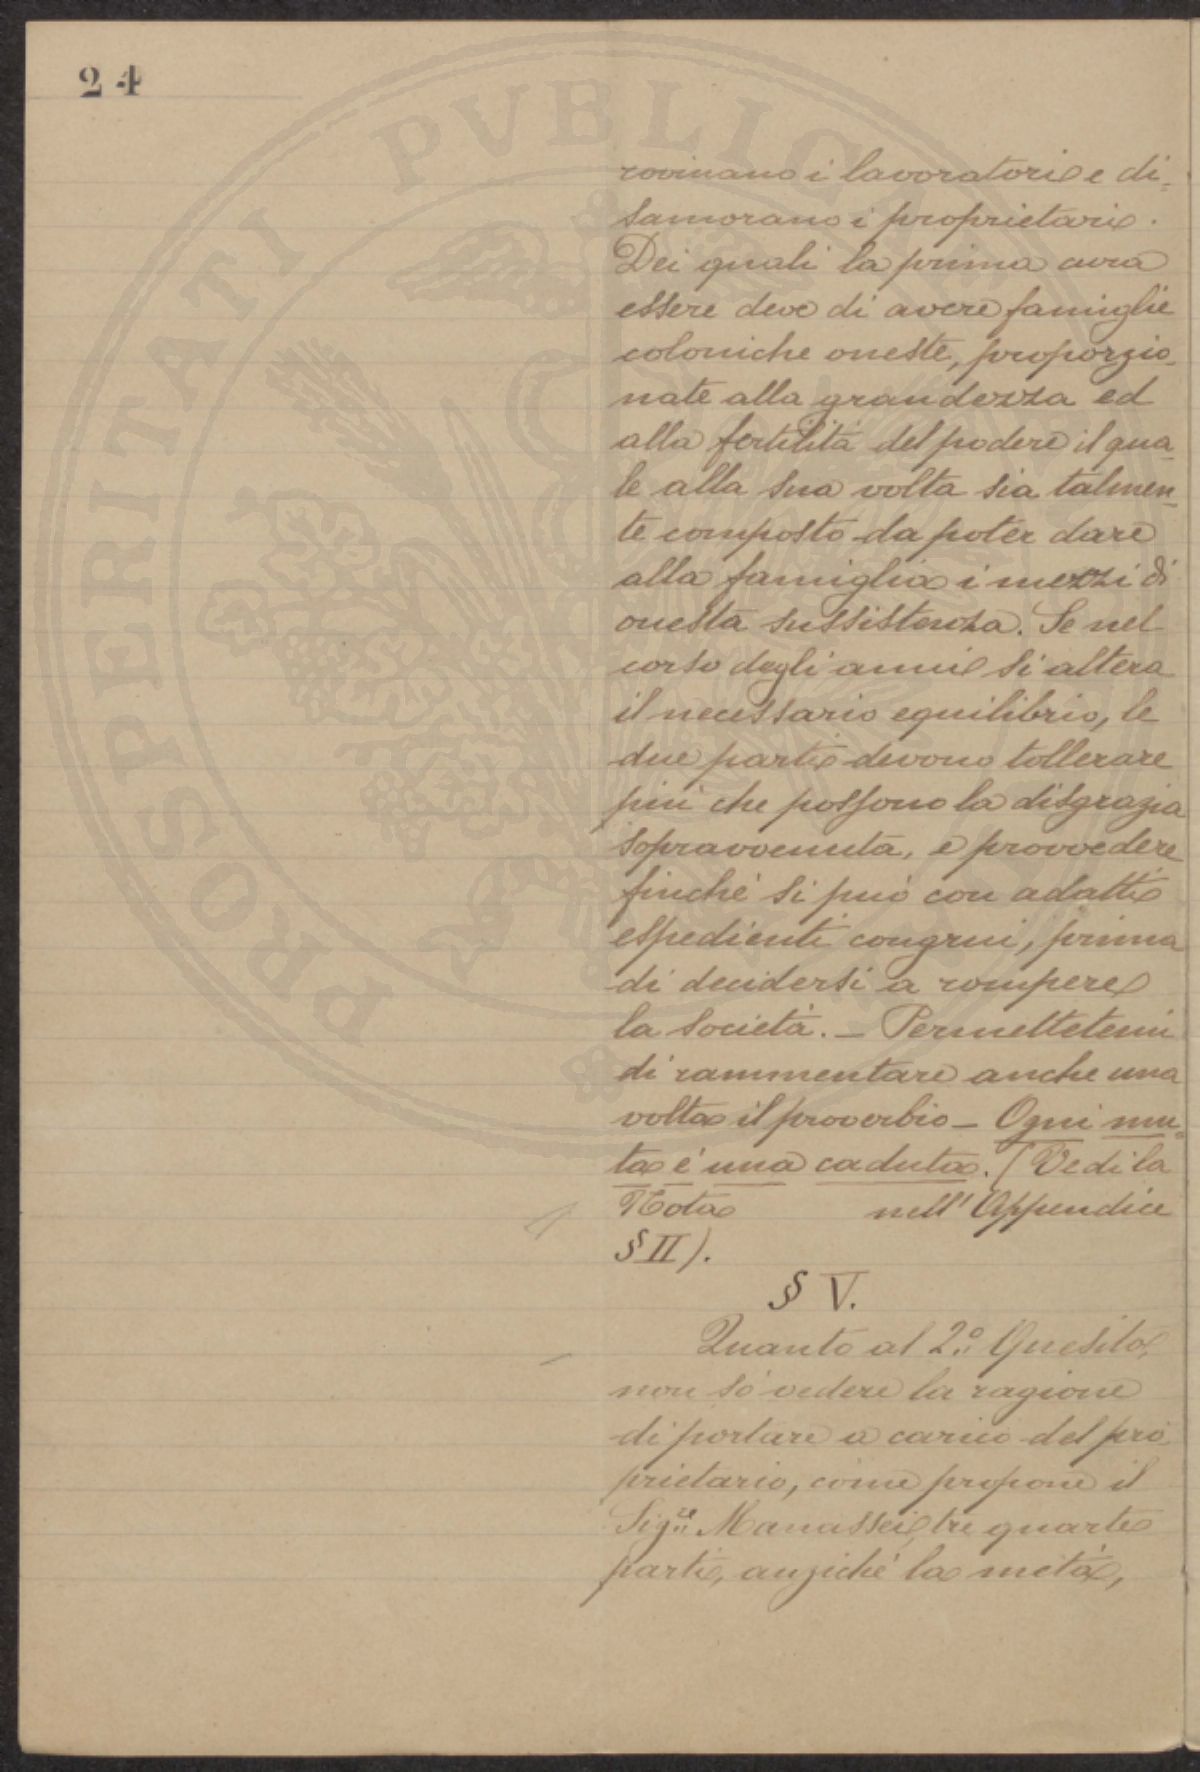 24
PROSPERITATI PVBLICAE
rovinano i lavoratori e di-
samorano i proprietari.
Dei quali la prima cura
essere deve di avere famiglie
coloniche oneste, proporzio-
nate alla grandezza ed
alla fertilità del podere il qua-
le alla sua volta sia talmen-
te composto da poter dare
alla famiglia i mezzi di
onesta sussistenza. Se nel
corso degli anni si altera
il necessario equilibrio, le
due parti devono tollerare
più che possono la disgrazia
sopravvenuta, e provvedere
finché si può con adatti
espedienti congrui, prima
di decidersi a rompere
la società. — Permettetemi
di rammentare anche una
volta il proverbio — Ogni mu-
ta é una caduta. (Vedi la
Nota nell'Appendice
§ II).
§ V.
Quanto al 2º Quesito,
non sò vedere la ragione
di portare a carico del pro
prietario, come propone il
Sigre Manassei, tre quarte
parti, anziché la metà,